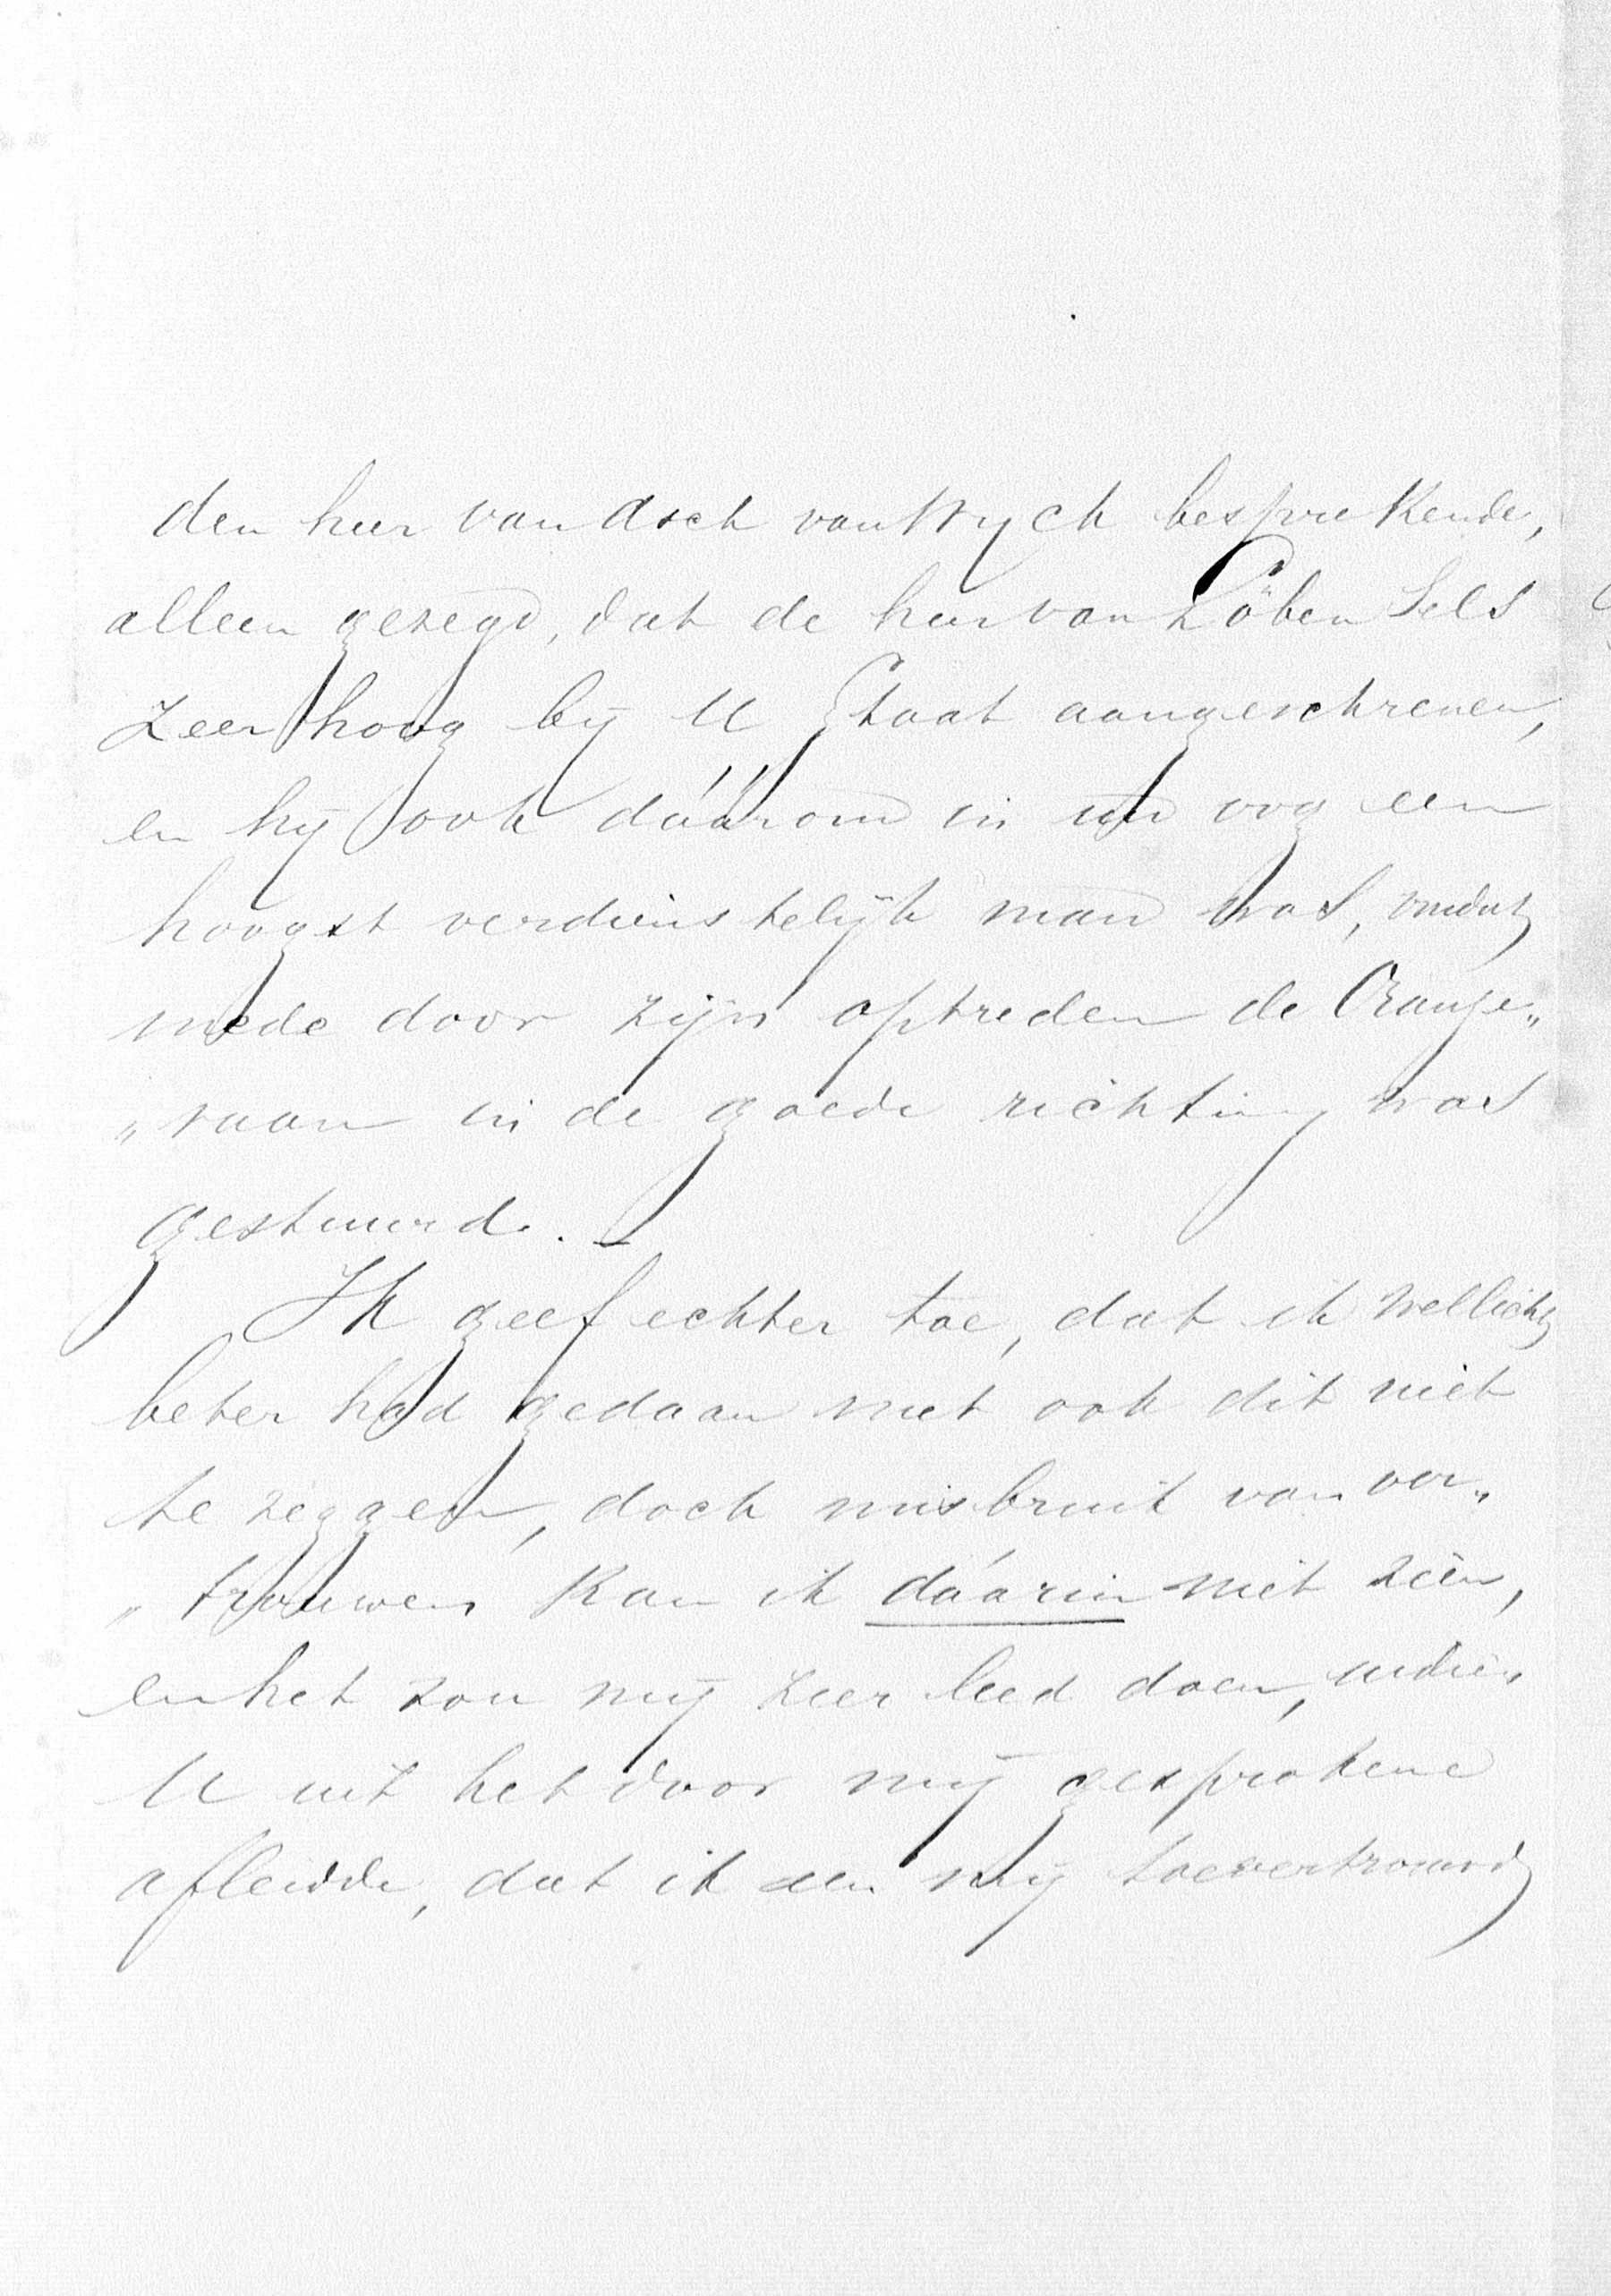 den heer van Asch van Wyck besprekende,
alleen gezegd, dat de heer van Löben Sels
zeer hoog bij U staat aangeschreven,
en hij ook dáárom in uw oog een
hoogst verdienstelijk man was, omdat
mede door zijn optreden de Oranje„
„vaan in de goede richting was
gestuurd. —
Ik geef echter toe, dat ik wellicht
beter had gedaan met ook dit niet
te zeggen, doch misbruik van ver„
„trouwen kan ik dáárin niet zien,
en het zou mij zeer leed doen, indien
U uit het door mij gesprokene
afleidde, dat ik een mij toevertrouwd